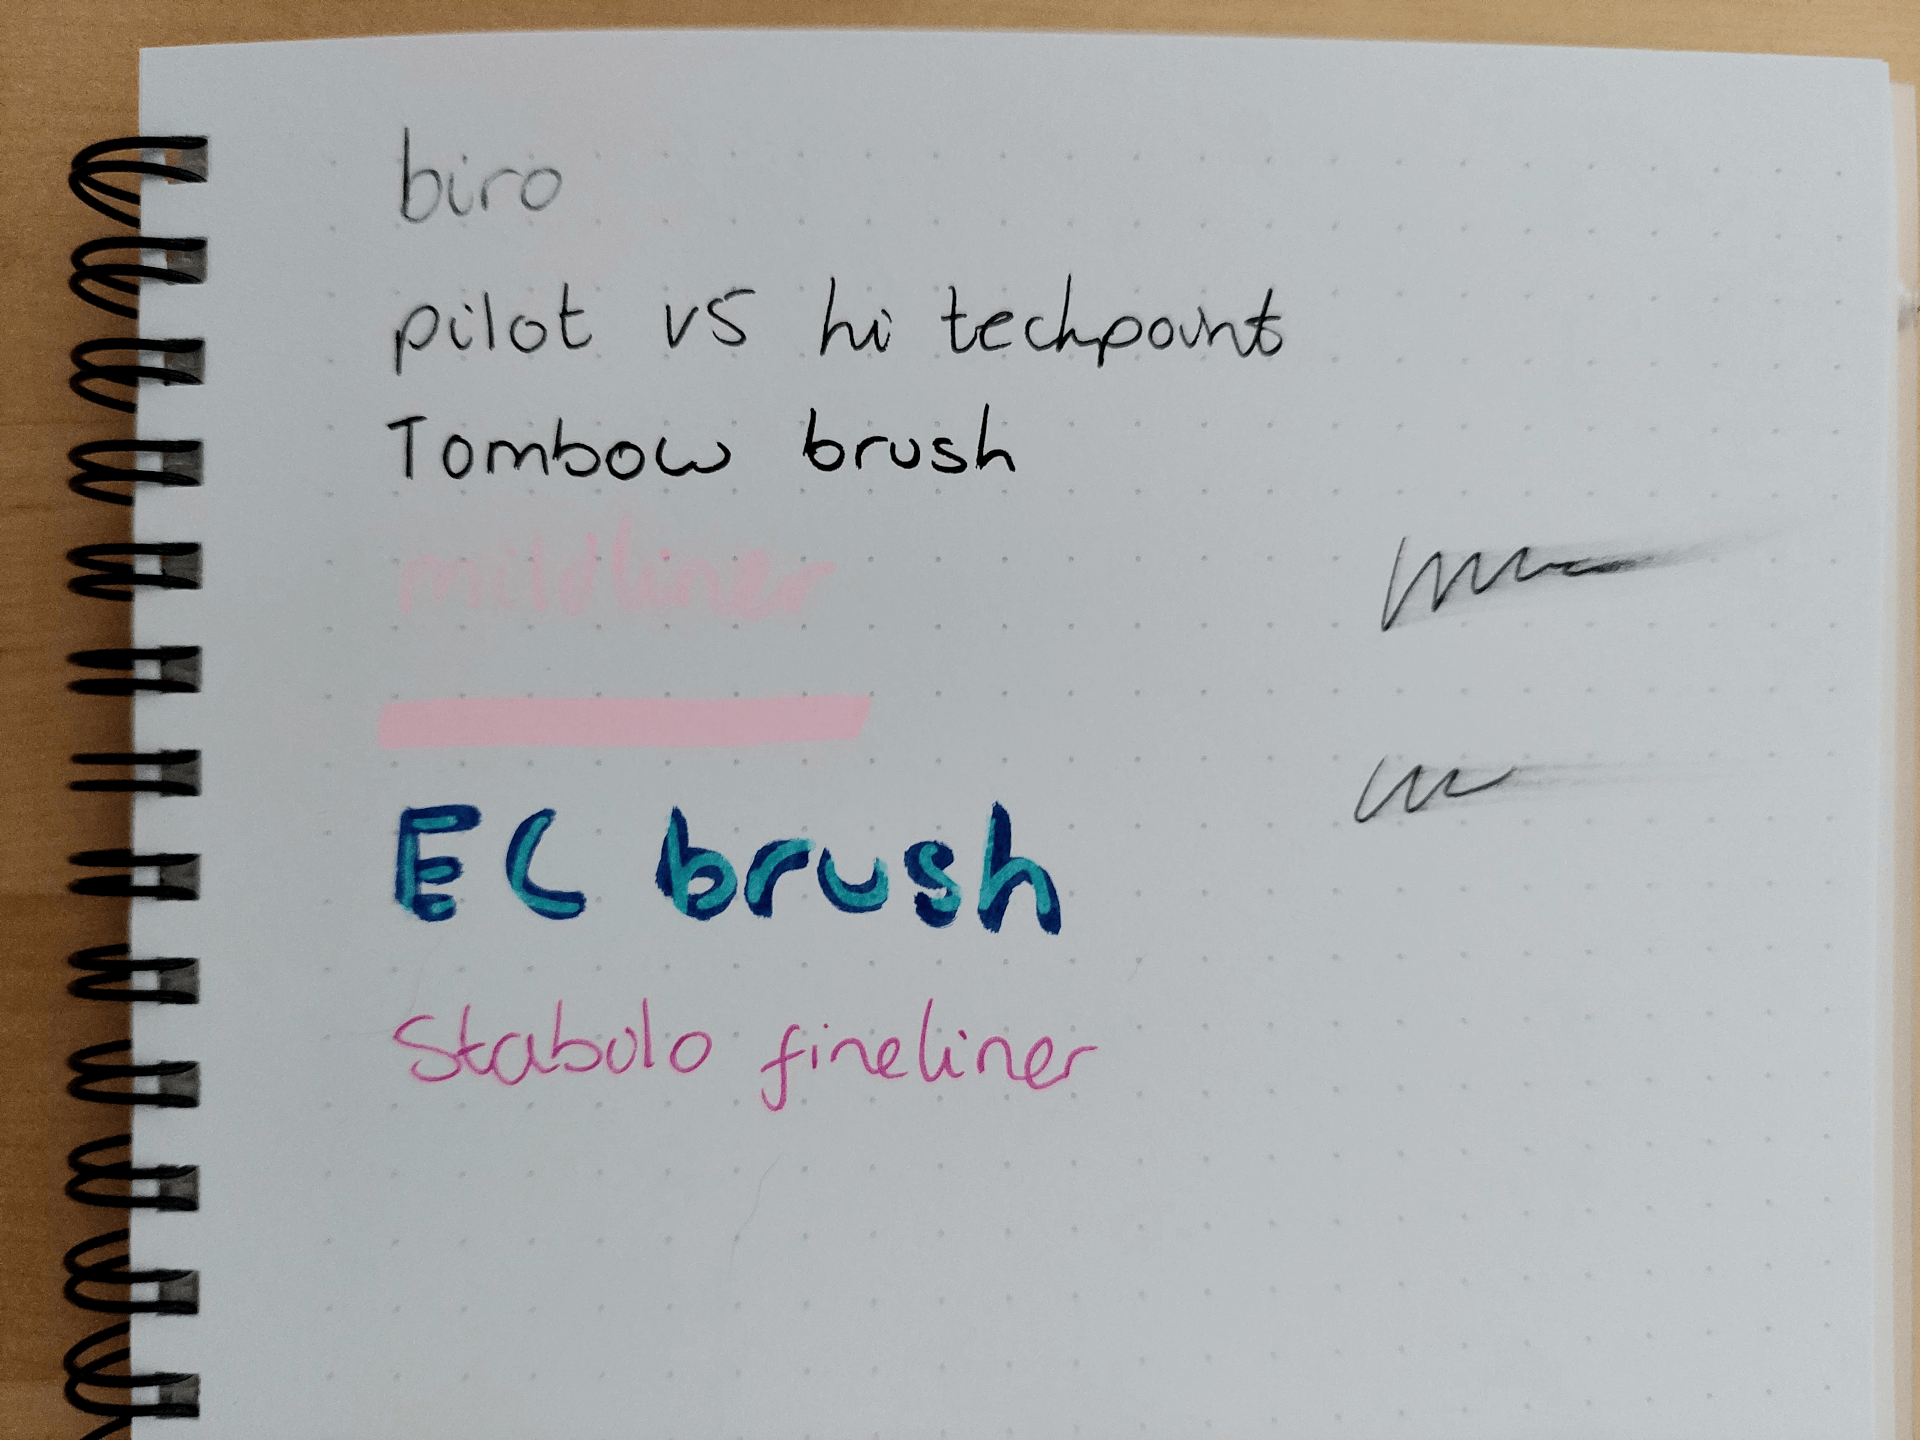 biro
pilot V5 hi techpoint
Tombow brush
mildliner
EC brush
Stabolo fineliner